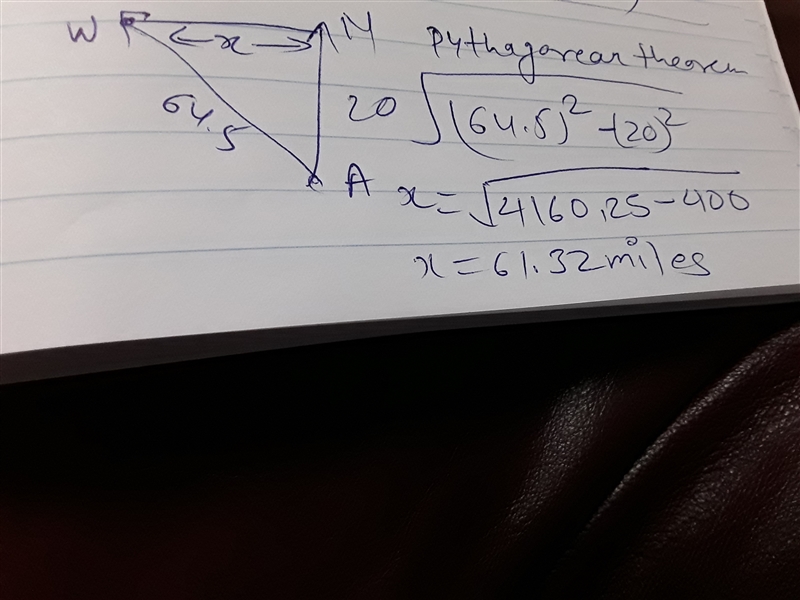 W ← x → M
64.5
20
A
Pythagorean theorem
√(64.5)² - (20)²
x = √4160.25 - 400
x = 61.32 miles